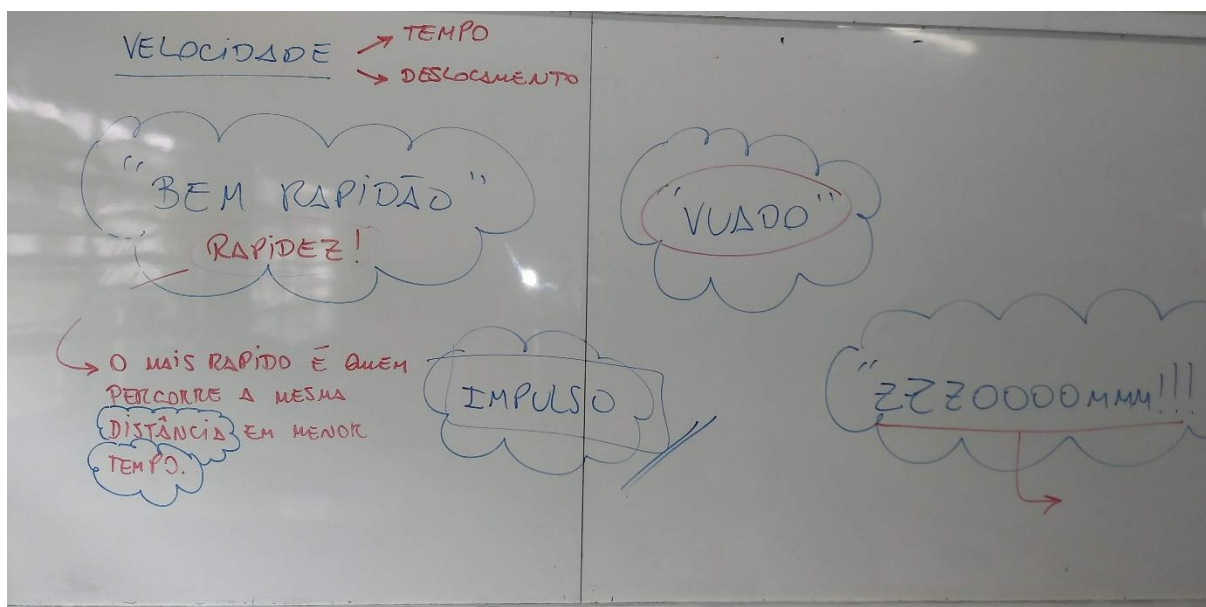 VELOCIDADE
TEMPO
DESLOCAMENTO
"BEM RAPIDÃO"
RAPIDEZ!
"VUADO"
O MAIS RAPIDO É QUEM
PERCORRE A MESMA
DISTÂNCIA EM MENOR
TEMPO.
IMPULSO
"ZZZOOOOMMM!!!